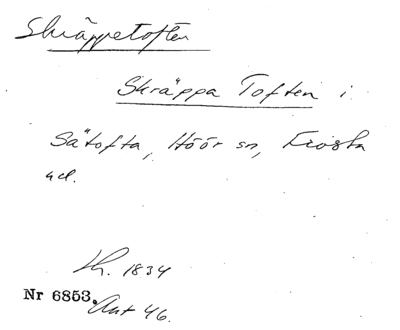 Skräppetoften
Skräppa Toften i
Sätofta, Höör sn, Frosta
hd.
Lh. 1834
Nr 6853. Ant 46.